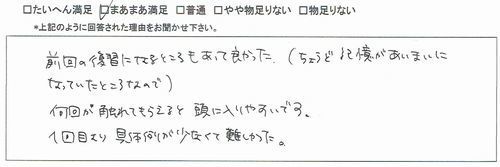 □たいへん満足 ☑まあまあ満足 □普通 □やや物足りない □物足りない
*上記のように回答された理由をお聞かせ下さい。
前回の復習になるところもあって良かった。(ちょうど記憶があいまいに
なっていたところなので)
何回か触れてもらえると頭に入りやすいです。
1回目より具体例が少なくて難しかった。